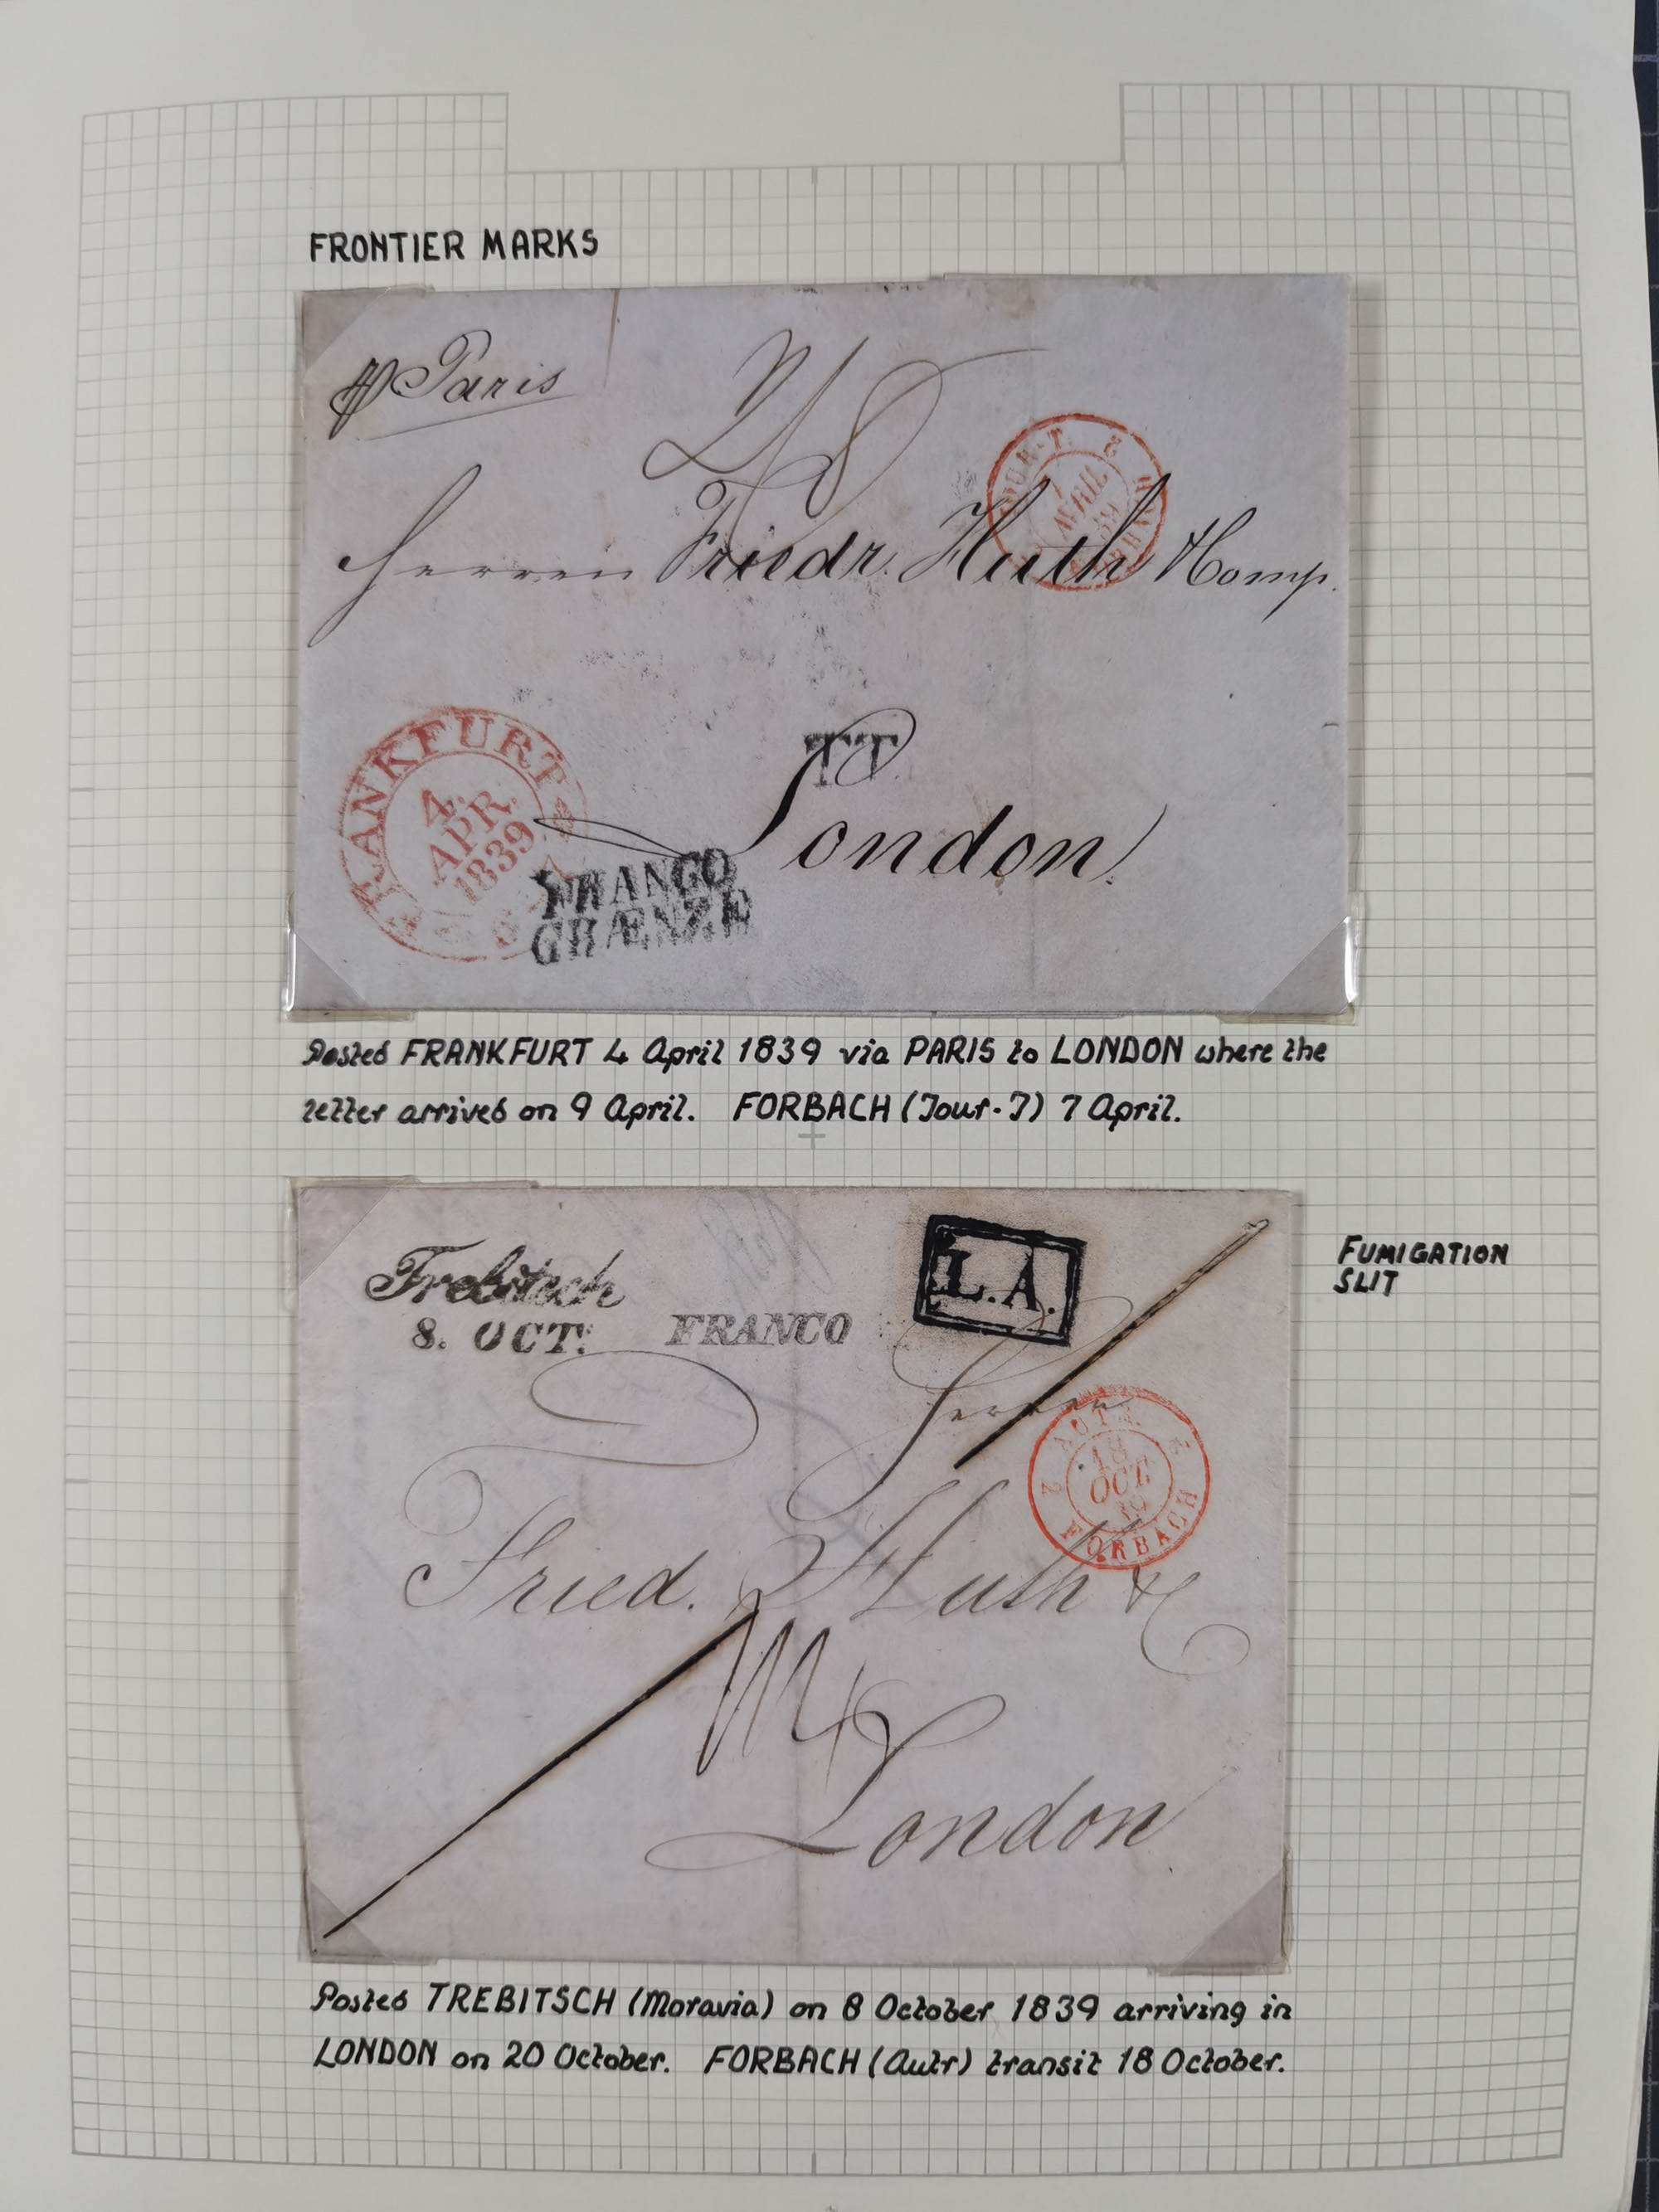 FRONTIER MARKS
pr Paris
TOUR-T.
7
AVRIL
39
FORBACH
Herren Friedr. Huth & Comp.
TT
London.
FRANKFURT
4.
APR.
1839
FRANCO
GRÆNZE
Posted FRANKFURT 4 April 1839 via PARIS to LONDON where the
letter arrived on 9 April. FORBACH (Tour-T) 7 April.
Trebitsch
8. OCT.
FRANCO
L.A.
FUMIGATION
SLIT
Herren
2 AUTR. 2
18
OCT.
39
FORBACH
Fried. Huth & C
London
Posted TREBITSCH (Moravia) on 8 October 1839 arriving in
LONDON on 20 October. FORBACH (Autr) transit 18 October.